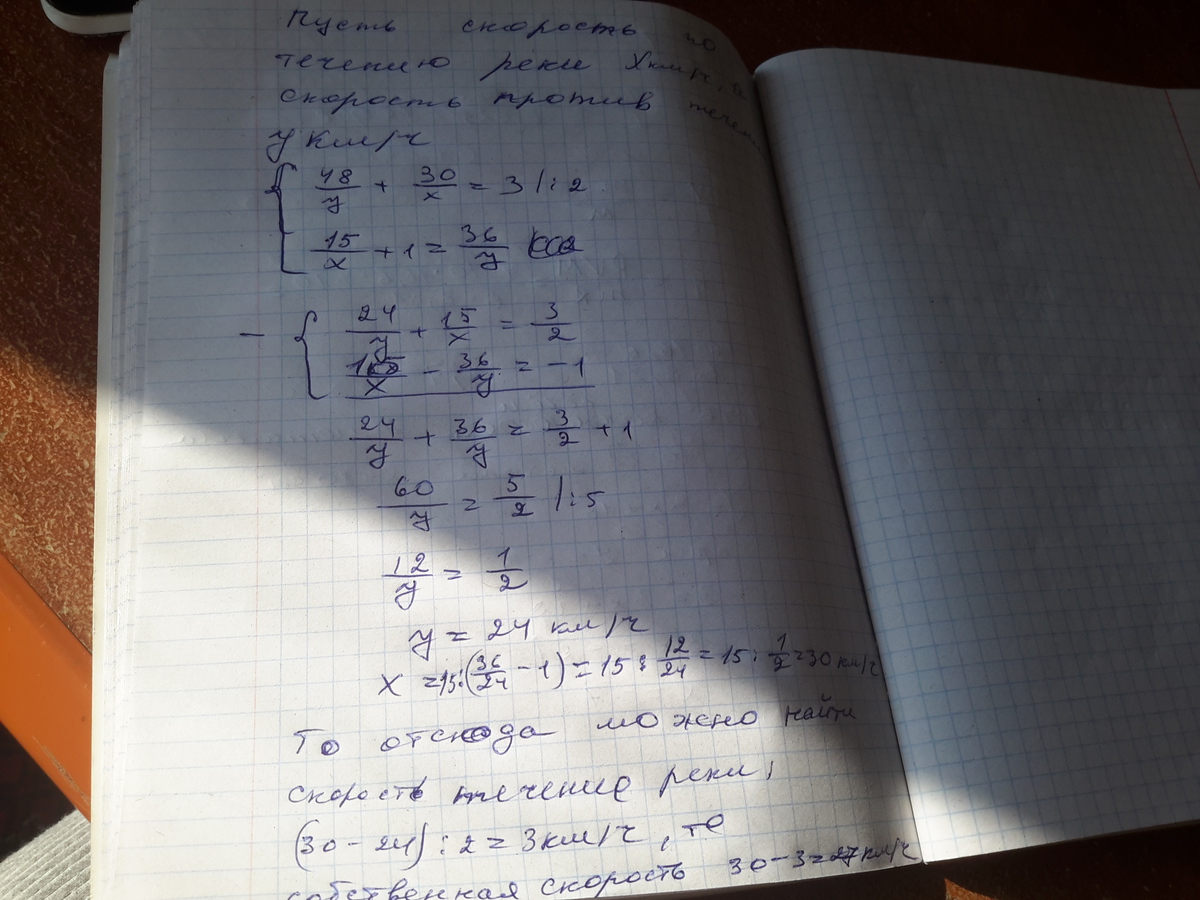 Пусть скорость по
течению реки x км/ч, а
скорость против течения
y км/ч
48/y + 30/x = 3 |:2
15/x + 1 = 36/y
24/y + 15/x = 3/2
−
15/x − 36/y = −1
24/y + 36/y = 3/2 + 1
60/y = 5/2 |:5
12/y = 1/2
y = 24 км/ч
x = 15:(36/24 − 1) = 15 : 12/24 = 15 : 1/2 = 30 км/ч
То отсюда можно найти
скорость течение реки,
(30 − 24) : 2 = 3 км/ч, то
собственная скорость 30 − 3 = 27 км/ч